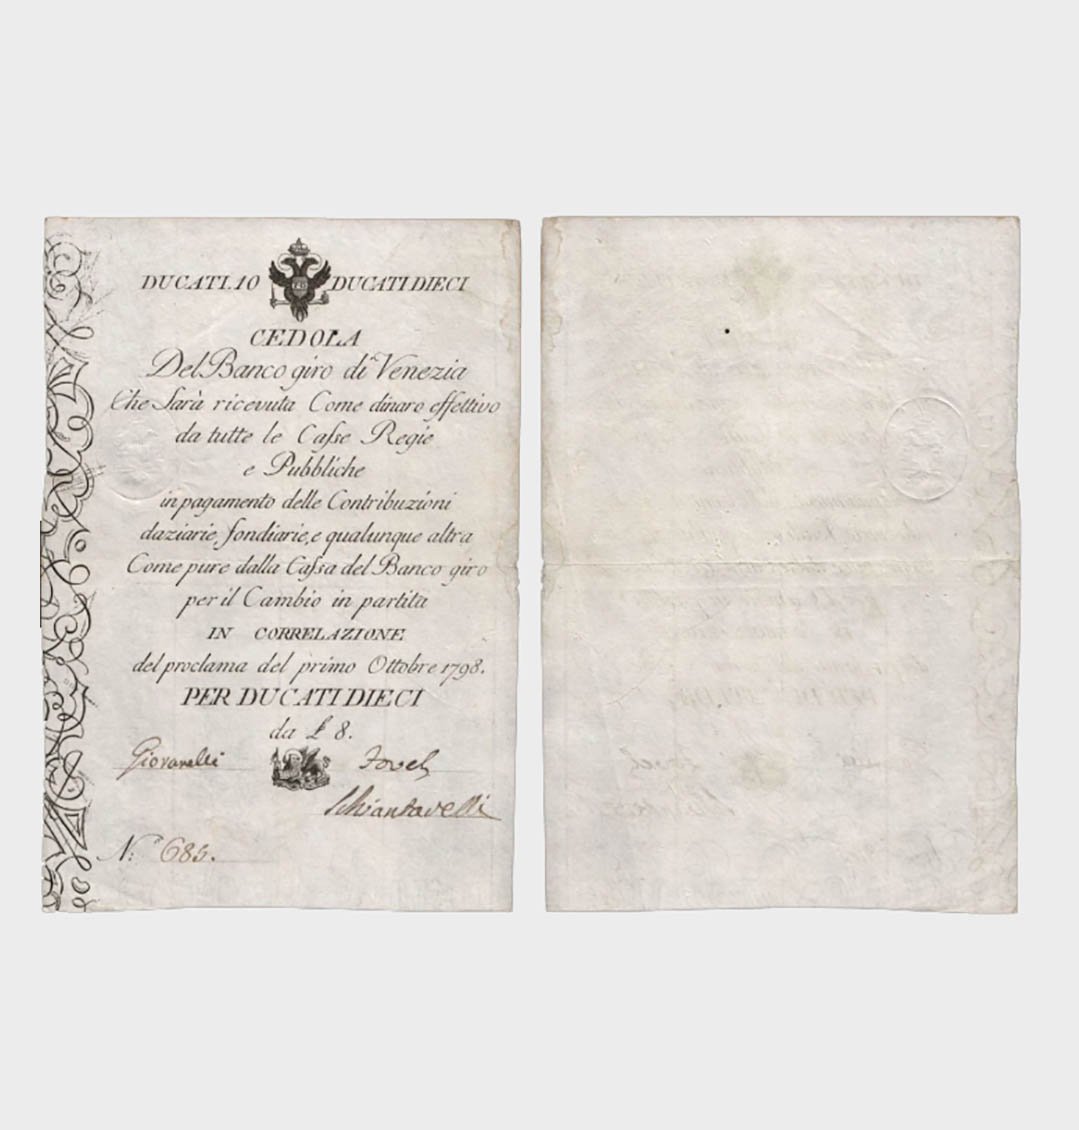 DUCATI.10 DUCATI DIECI
CEDOLA
Del Banco giro di Venezia
Che Sarà ricevuta Come dinaro effettivo
da tutte le Caſse Regie
e Pubbliche
in pagamento delle Contribuzioni
daziarie, fondiarie, e qualunque altra
Come pure dalla Caſsa del Banco giro
per il Cambio in partita
IN CORRELAZIONE
del proclama del primo Ottobre 1798.
PER DUCATI DIECI
da £ 8.
Giovanelli
N.º 685.